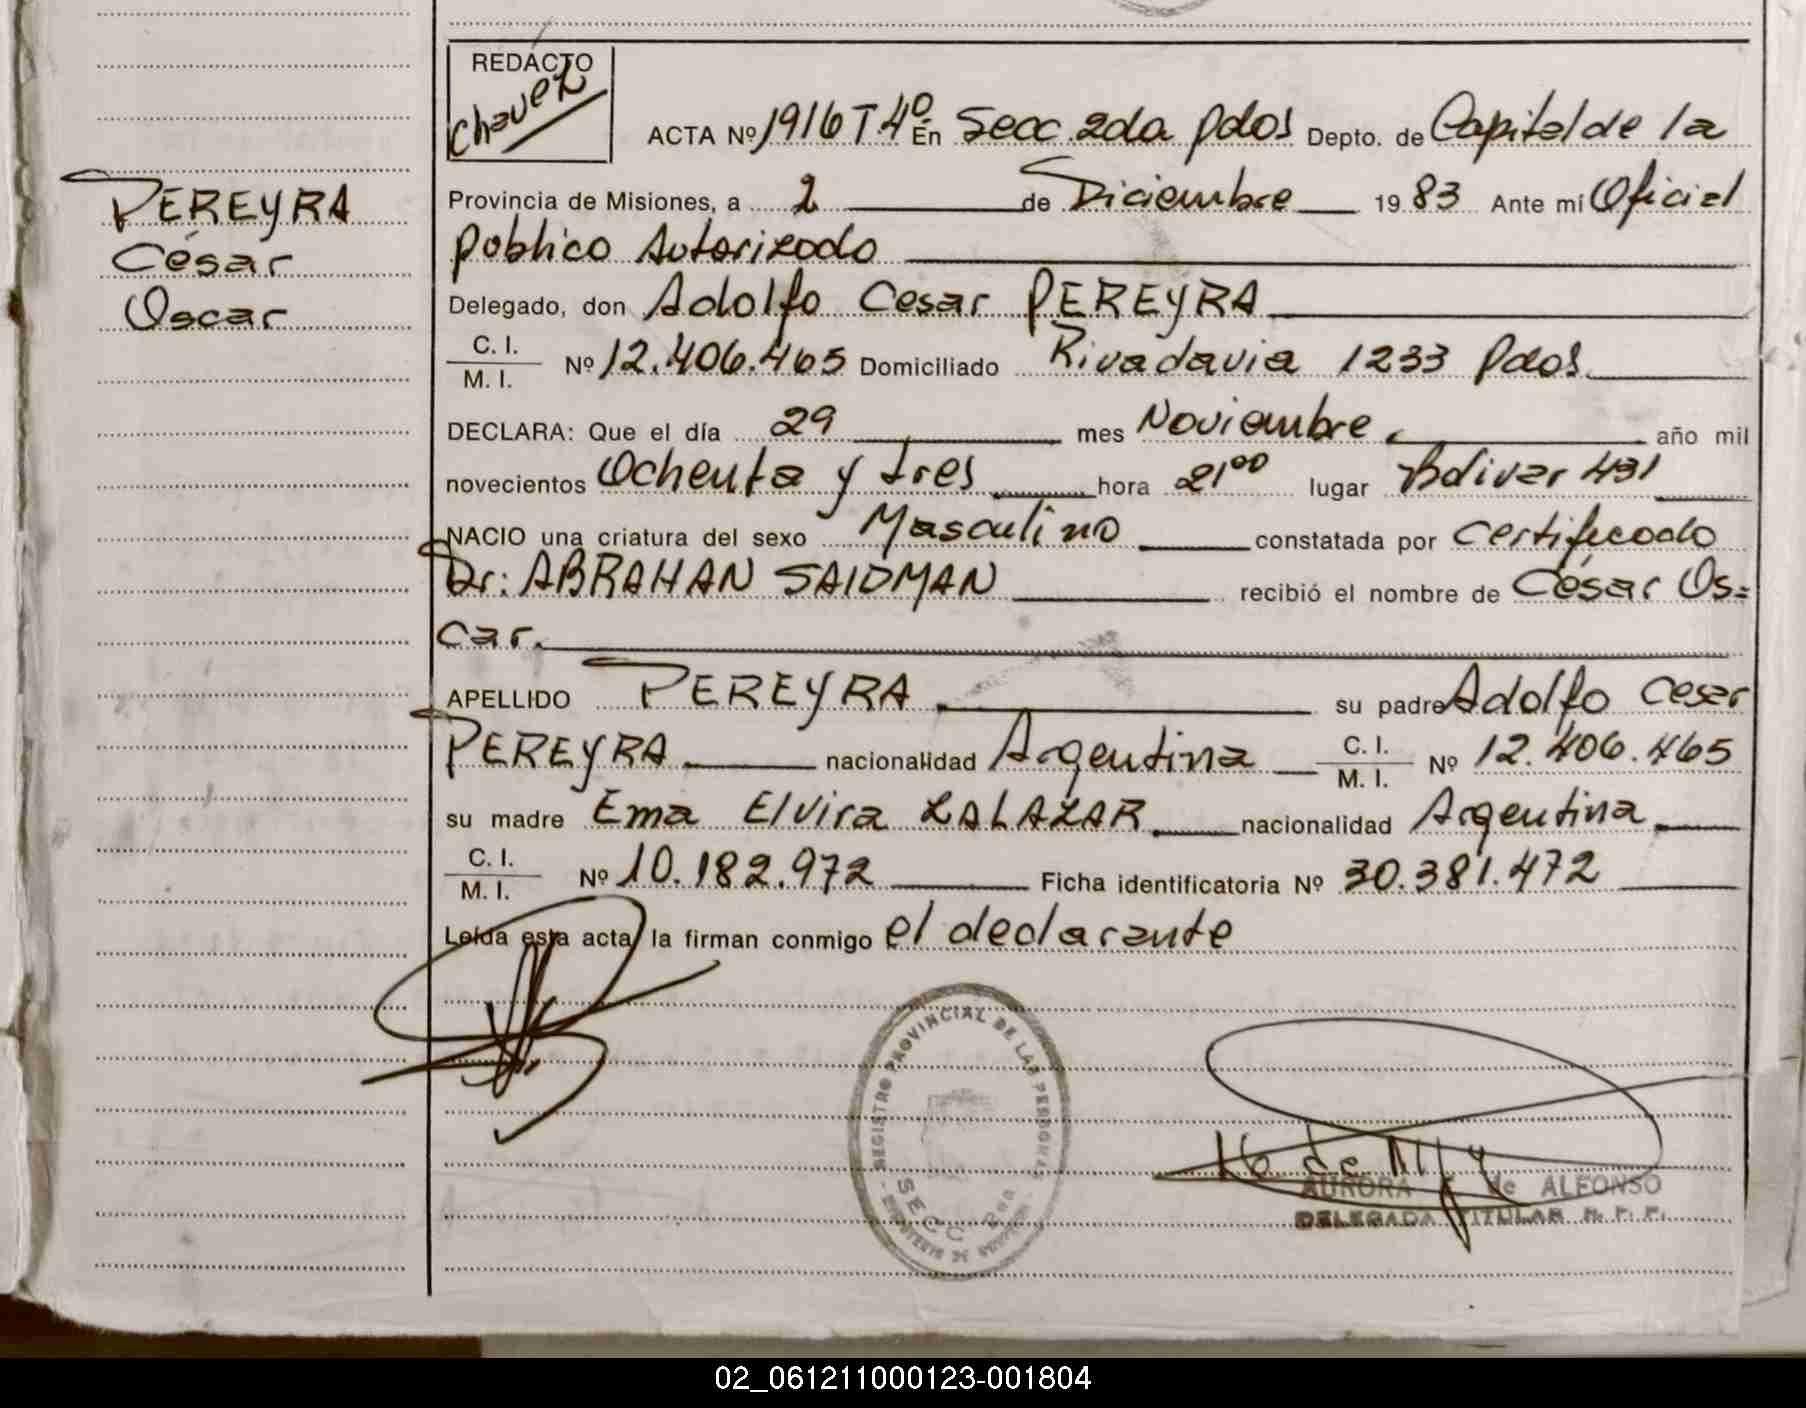 REDACTO
Chavez
ACTA Nº 1916 T. 4º En Secc. 2da Pdas Depto. de Capital de la
PEREYRA
César
Oscar
Provincia de Misiones, a 2 de Diciembre 1983 Ante mí Oficial
Público Autorizado
Delegado, don Adolfo Cesar PEREYRA
C. I.
M. I. Nº 12.406.465 Domiciliado Rivadavia 1233 Pdas
DECLARA: Que el día 29 mes Noviembre año mil
novecientos Ochenta y tres hora 21 00 lugar Bolivar 431
NACIO una criatura del sexo Masculino constatada por Certificado
Dr: ABRAHAN SAIDMAN recibió el nombre de César Os=
car.
APELLIDO PEREYRA su padre Adolfo Cesar
PEREYRA nacionalidad Argentina C. I.
M. I. Nº 12.406.465
su madre Ema Elvira ZALAZAR nacionalidad Argentina
C. I.
M. I. Nº 10.182.972 Ficha identificatoria Nº 30.381.472
Leída esta acta, la firman conmigo el declarante
REGISTRO PROVINCIAL DE LAS PERSONAS
SECC 2da
AURORA de ALFONSO
DELEGADA TITULAR R. P. P.
02_061211000123-001804